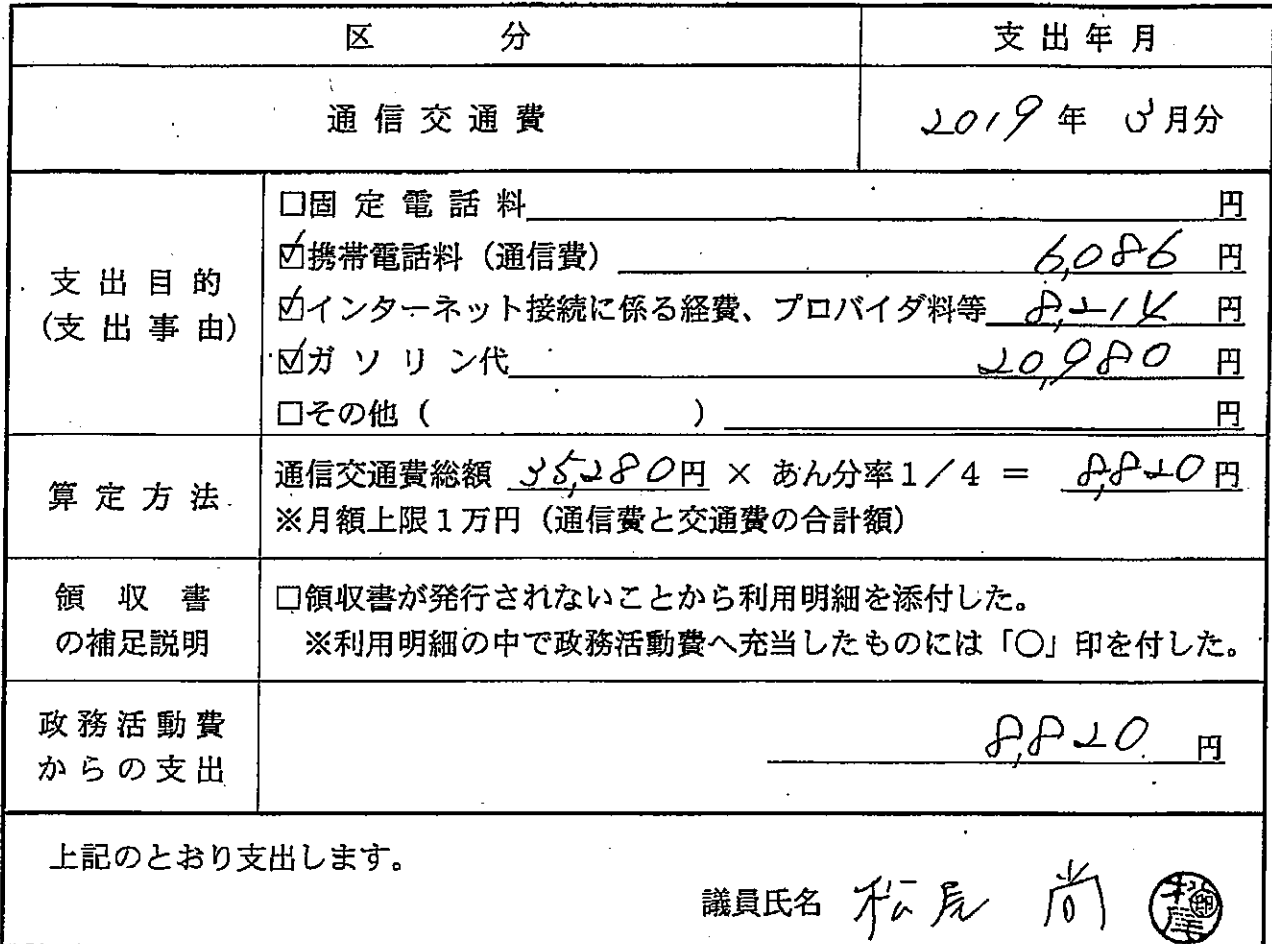 区 分 支出年月
通信交通費 2019年 3月分
支出目的
(支出事由)
□固定電話料 円
☑携帯電話料（通信費） 6,086 円
☑インターネット接続に係る経費、プロバイダ料等 8,214 円
☑ガソリン代 20,980 円
□その他（ ） 円
算定方法
通信交通費総額 35,280円 × あん分率1／4 ＝ 8,820円
※月額上限1万円（通信費と交通費の合計額）
領収書
の補足説明
□領収書が発行されないことから利用明細を添付した。
※利用明細の中で政務活動費へ充当したものには「○」印を付した。
政務活動費
からの支出
8,820 円
上記のとおり支出します。
議員氏名 松尾 尚 松尾印